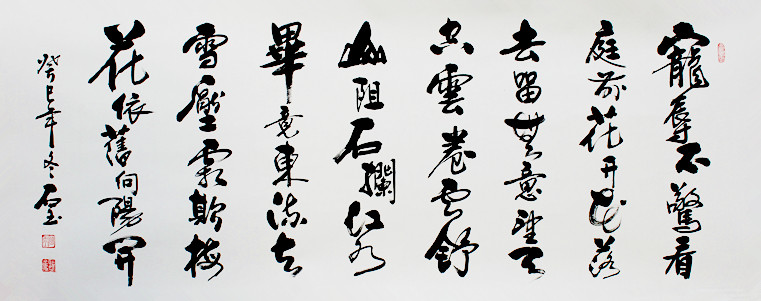 寵辱不驚看
庭前花开花落
去留無意望天
空雲卷云舒
山阻石攔江水
畢竟東流去
雪壓霜欺梅
花依舊向陽開
癸巳年冬